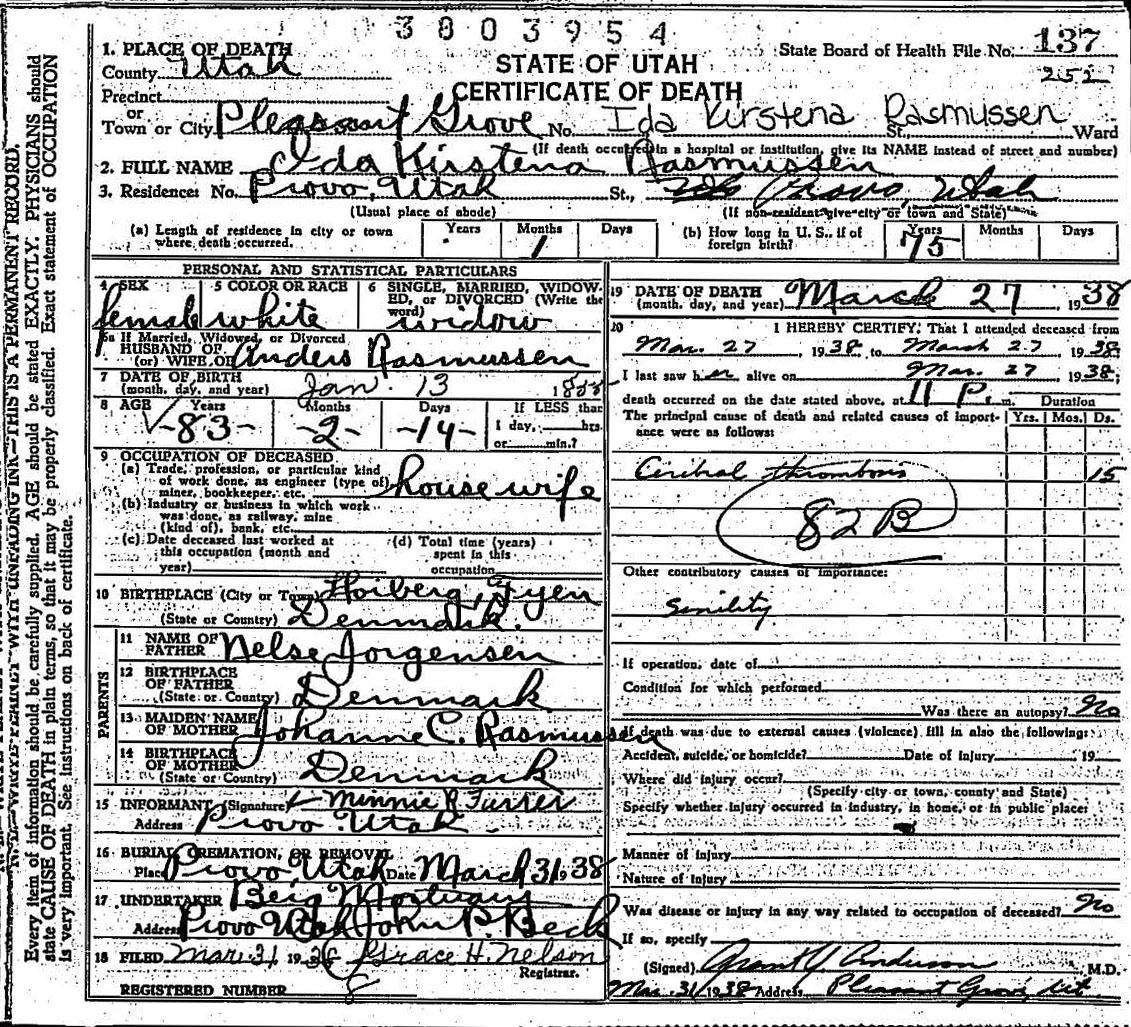 3803954
State Board of Health File No. 137
252
STATE OF UTAH
CERTIFICATE OF DEATH
1. PLACE OF DEATH
County Utah
Precinct
or
Town or City Pleasant Grove No. Ida Kirstena Rasmussen St. Ward
(If death occurred in a hospital or institution, give its NAME instead of street and number)
2. FULL NAME Ida Kirstena Rasmussen
3. Residence: No. Provo, Utah St., Provo, Utah
(Usual place of abode) (If non-resident give city or town and State)
(a) Length of residence in city or town where death occurred. Years Months 1 Days
(b) How long in U. S., if of foreign birth? Years 75 Months Days
PERSONAL AND STATISTICAL PARTICULARS
4 SEX female
5 COLOR OR RACE white
6 SINGLE, MARRIED, WIDOWED, or DIVORCED (Write the word) widow
5a If Married, Widowed, or Divorced
HUSBAND OF
(or) WIFE OF Anders Rasmussen
7 DATE OF BIRTH
(month, day, and year) Jan. 13 1855
8 AGE Years -83- Months -2- Days -14-
If LESS than
1 day, hrs.
or min.?
9 OCCUPATION OF DECEASED
(a) Trade, profession, or particular kind
of work done, as engineer (type of)
miner, bookkeeper, etc. house wife
(b) Industry or business in which work
was done, as railway, mine
(kind of), bank, etc.
(c) Date deceased last worked at
this occupation (month and
year)
(d) Total time (years)
spent in this
occupation
10 BIRTHPLACE (City or Town) Hoiberg, Fyen
(State or Country) Denmark.
PARENTS
11 NAME OF
FATHER Nelse Jorgensen
12 BIRTHPLACE
OF FATHER
(State or Country) Denmark
13 MAIDEN NAME
OF MOTHER Johanne C. Rasmussen
14 BIRTHPLACE
OF MOTHER
(State or Country) Denmark
15 INFORMANT (Signature) Minnie R Furrer
Address Provo Utah
16 BURIAL, CREMATION, OR REMOVAL
Place Provo, Utah Date March 31 1938
17 UNDERTAKER Berg Mortuary
Address Provo Utah John P. Beck
18 FILED Mar. 31 1938 Grace H. Nelson
Registrar.
REGISTERED NUMBER 8
19 DATE OF DEATH
(month, day, and year) March 27 1938
20 I HEREBY CERTIFY, That I attended deceased from
Mar. 27, 1938, to March 27 1938;
I last saw her alive on Mar. 27 1938;
death occurred on the date stated above, at 11 P. m. Duration
The principal cause of death and related causes of importance were as follows: Yrs. Mos. Ds.
Ceribral thrombosis 15
82 B
Other contributory causes of importance:
Senility
If operation, date of
Condition for which performed
Was there an autopsy? No
If death was due to external causes (violence) fill in also the following:
Accident, suicide, or homicide? Date of Injury 19
Where did injury occur?
(Specify city or town, county and State)
Specify whether injury occurred in industry, in home, or in public place:
Manner of injury
Nature of injury
Was disease or injury in any way related to occupation of deceased? No
If so, specify
(Signed) Grant Y. Anderson M.D.
Mar. 31 1938 Address Pleasant Grove, Ut.
THIS IS A PERMANENT RECORD.
Every item of information should be carefully supplied. AGE should be stated EXACTLY. PHYSICIANS should
state CAUSE OF DEATH in plain terms, so that it may be properly classified. Exact statement of OCCUPATION
is very important. See instructions on back of certificate.